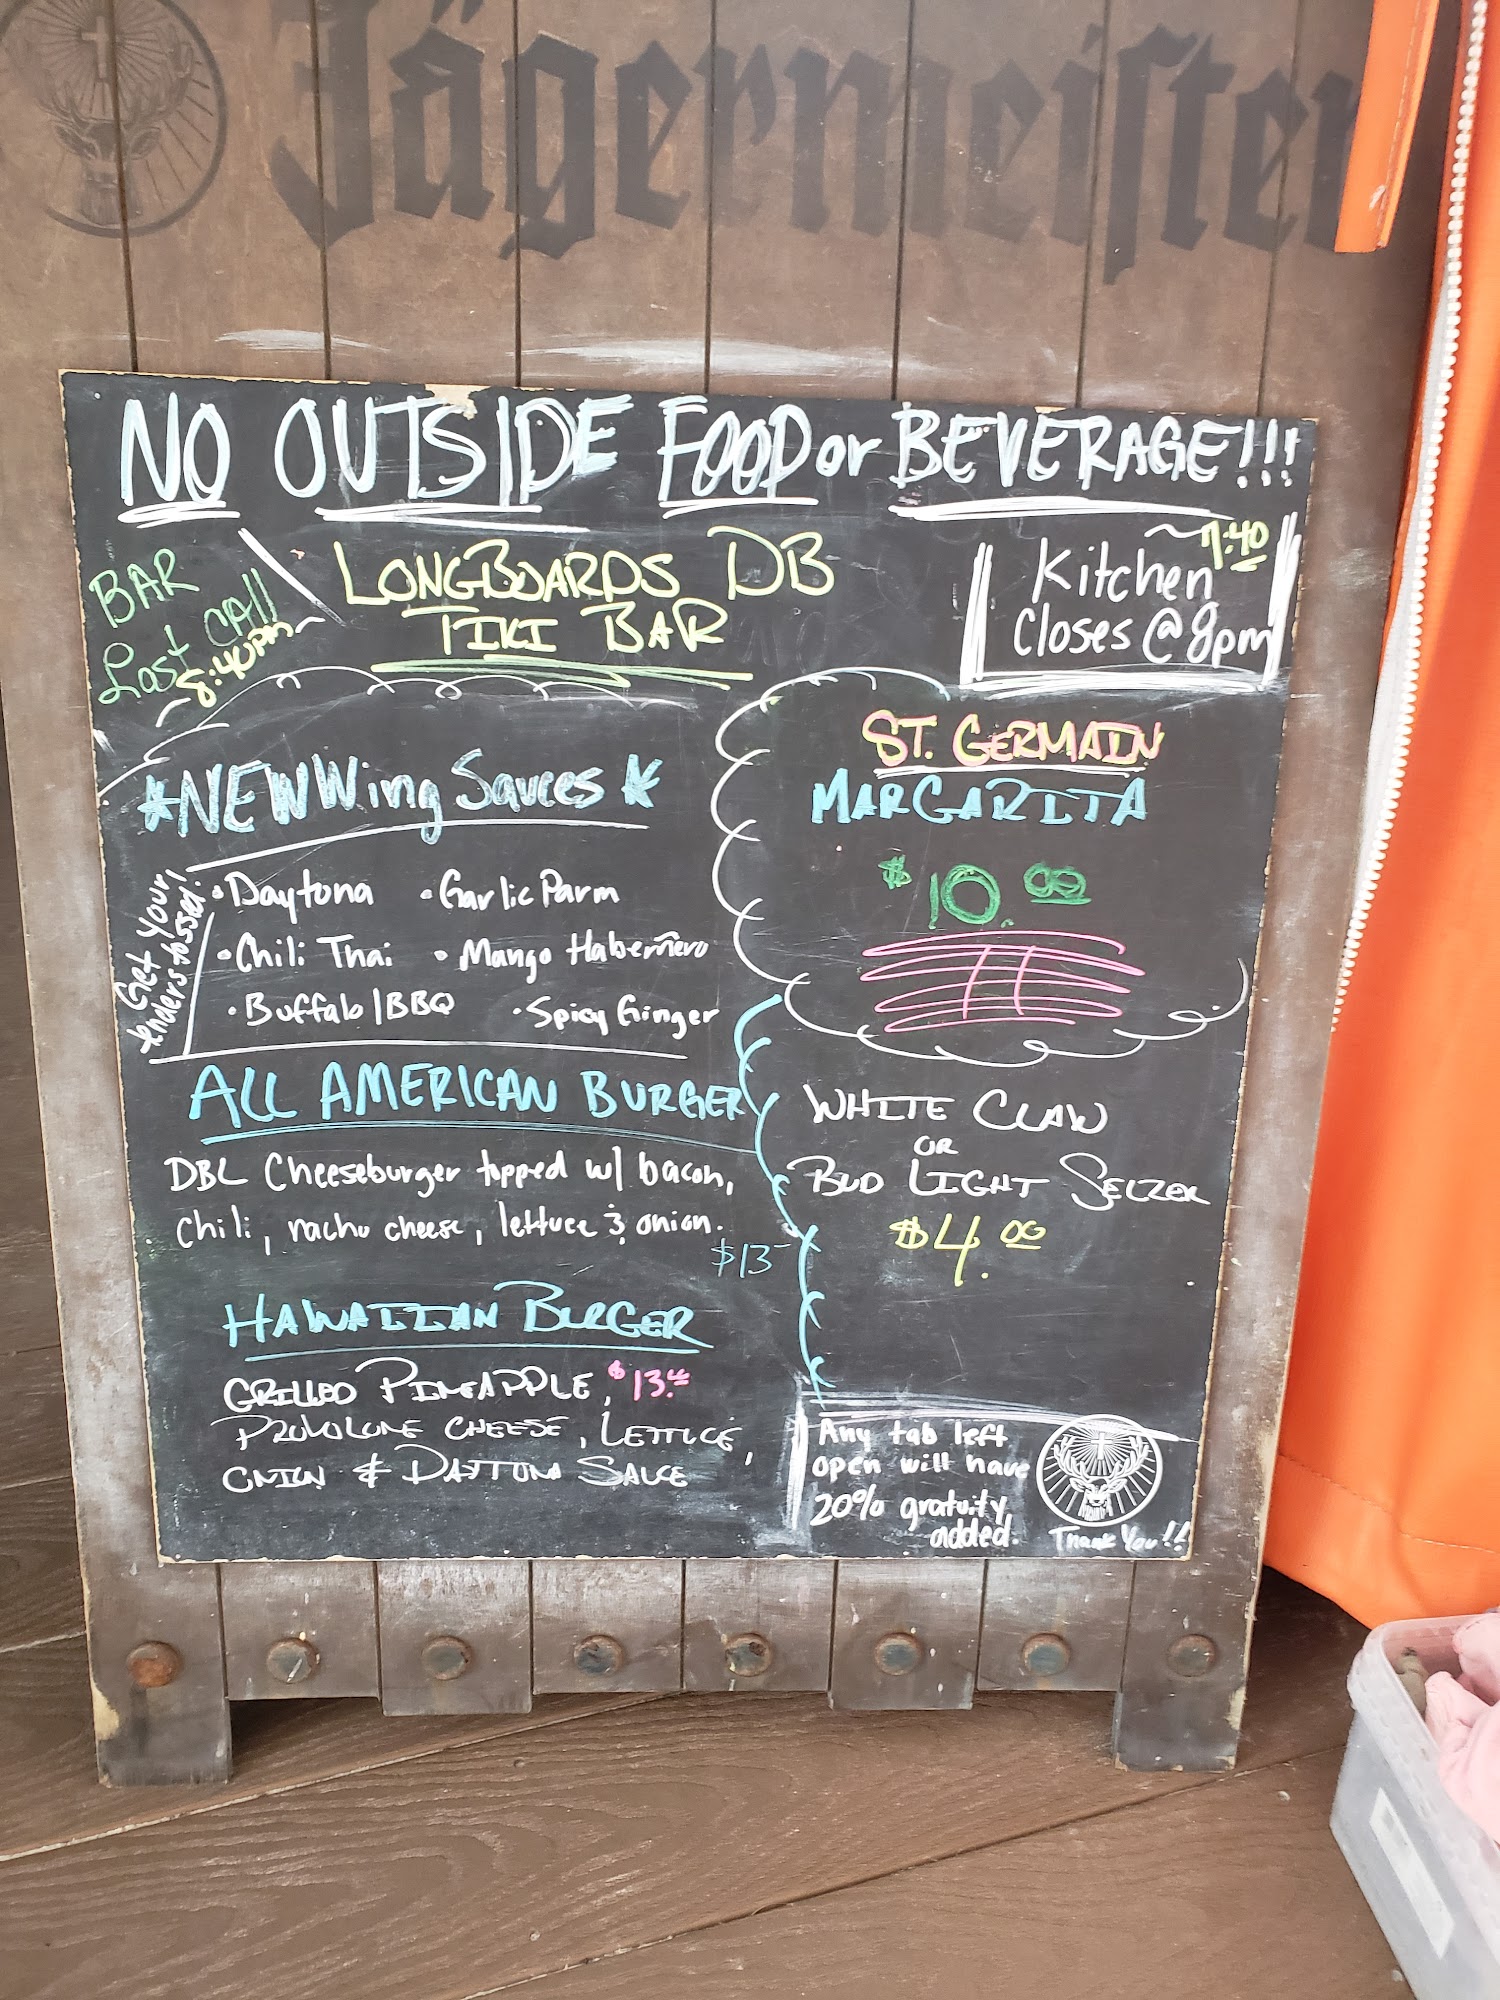 Jägermeister
NO OUTSIDE FOOD or BEVERAGE!!!
BAR
Last CAll
~8:40PM~
LONGBOARDS DB
TIKI BAR
~7:40
Kitchen
Closes @ 8pm
*NEW Wing Sauces*
Get Your
tnders tossed!
• Daytona • Garlic Parm
• Chili Thai • Mango Haberñero
• Buffalo / BBQ • Spicy Ginger
ALL AMERICAN BURGER
DBL Cheeseburger topped w/ bacon,
chili, nacho cheese, lettuce & onion.
$13
HAWAIIAN BURGER
GRILLED PINEAPPLE, $13.00
PROVOLONE CHEESE, LETTUCE,
ONION & DAYTONA SAUCE
ST. GERMAIN
MARGARITA
$10.00
WHITE CLAW
OR
BUD LIGHT SELZER
$4.00
Any tab left
open will have
20% gratuity
added.
Thank You!!